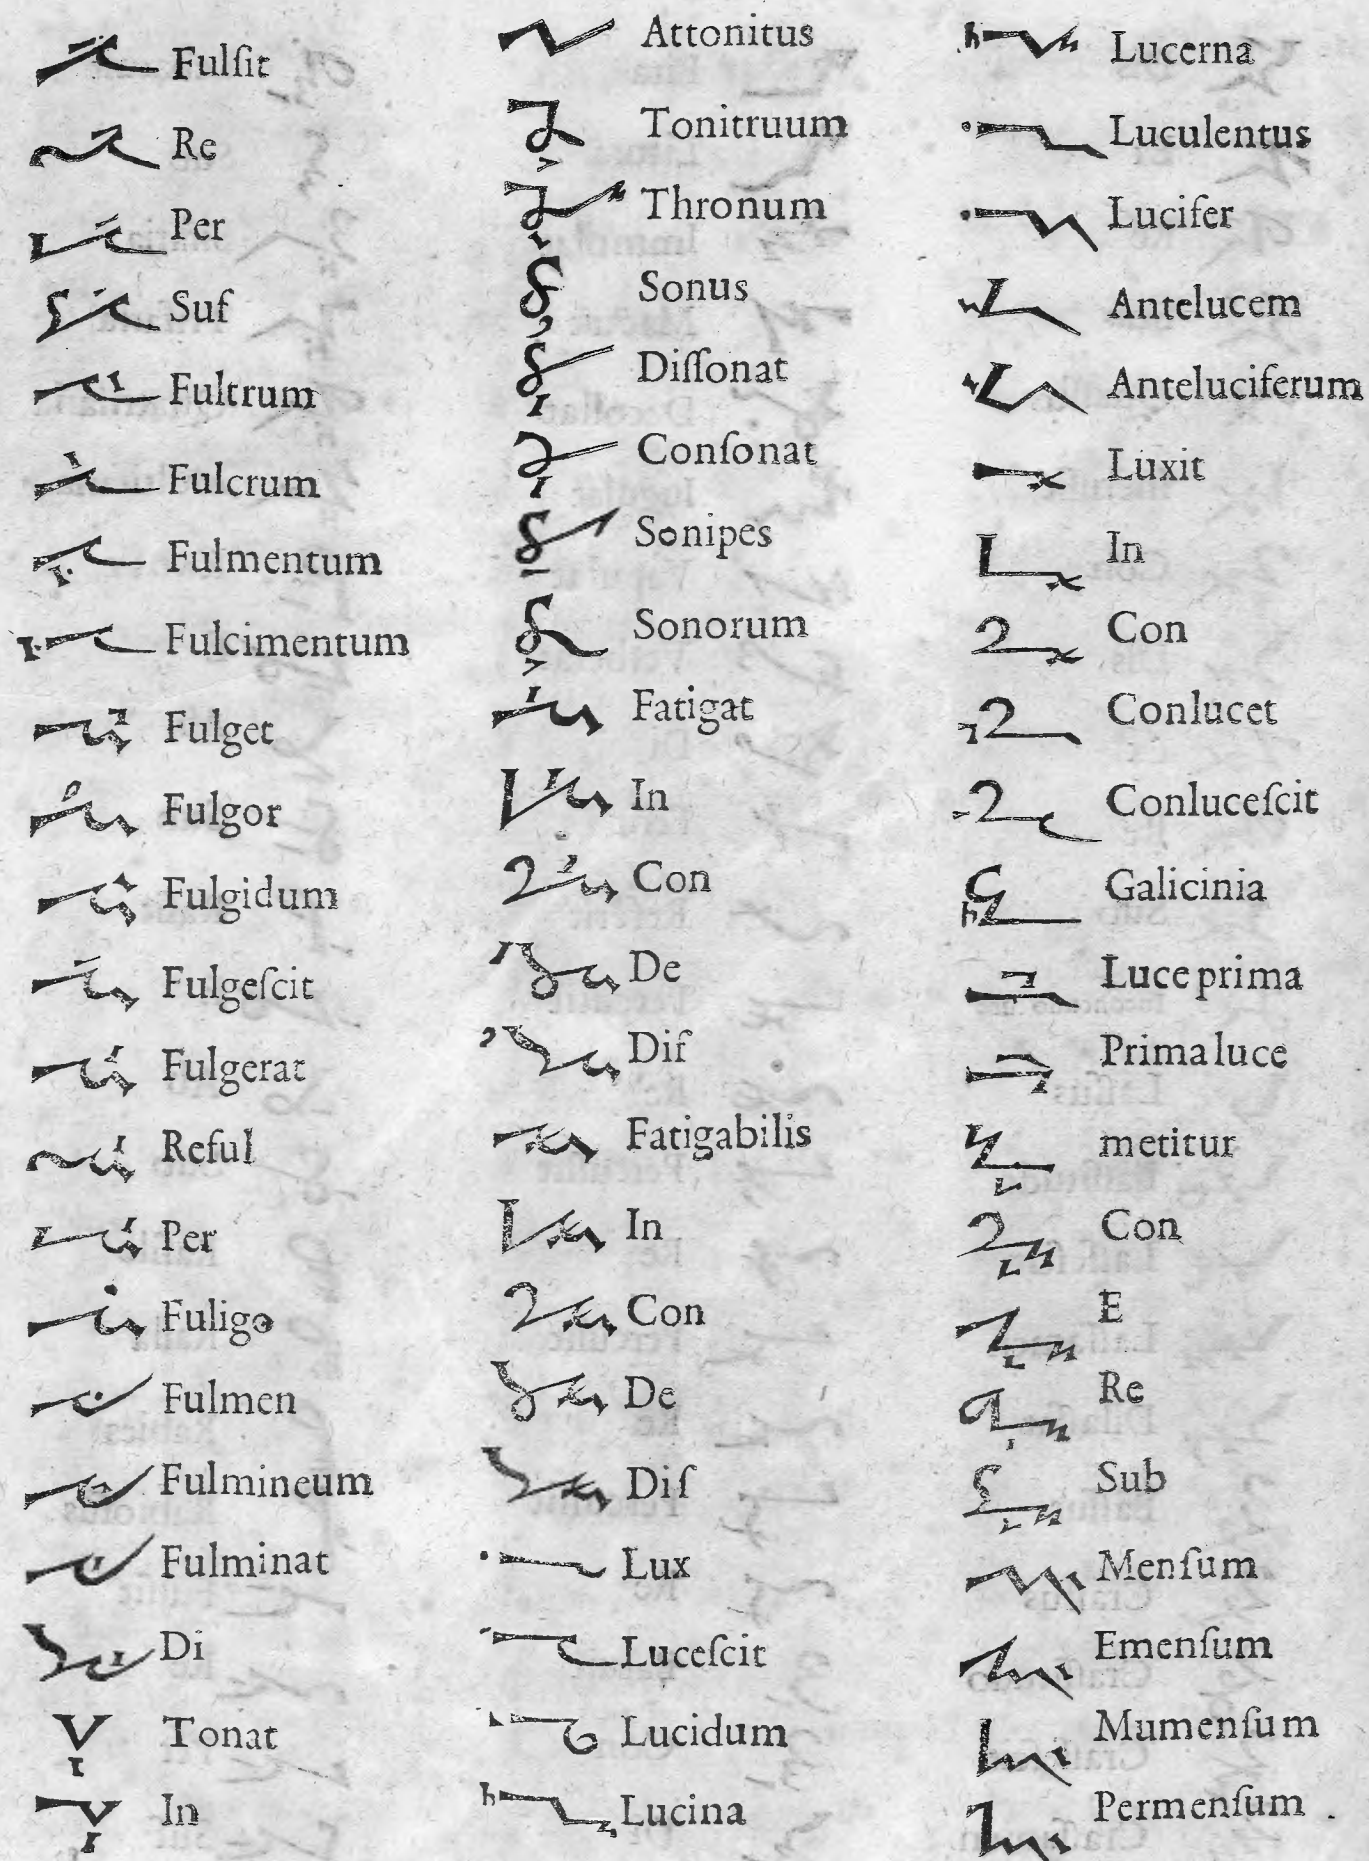 Fulſit
Re
Per
Suf
Fultrum
Fulcrum
Fulmentum
Fulcimentum
Fulget
Fulgor
Fulgidum
Fulgeſcit
Fulgerat
Reful
Per
Fuligo
Fulmen
Fulmineum
Fulminat
Di
Tonat
In
Attonitus
Tonitruum
Thronum
Sonus
Diſſonat
Conſonat
Sonipes
Sonorum
Fatigat
In
Con
De
Diſ
Fatigabilis
In
Con
De
Diſ
Lux
Luceſcit
Lucidum
Lucina
Lucerna
Luculentus
Lucifer
Antelucem
Anteluciferum
Luxit
In
Con
Conlucet
Conluceſcit
Galicinia
Luce prima
Prima luce
metitur
Con
E
Re
Sub
Menſum
Emenſum
Mumenſum
Permenſum .